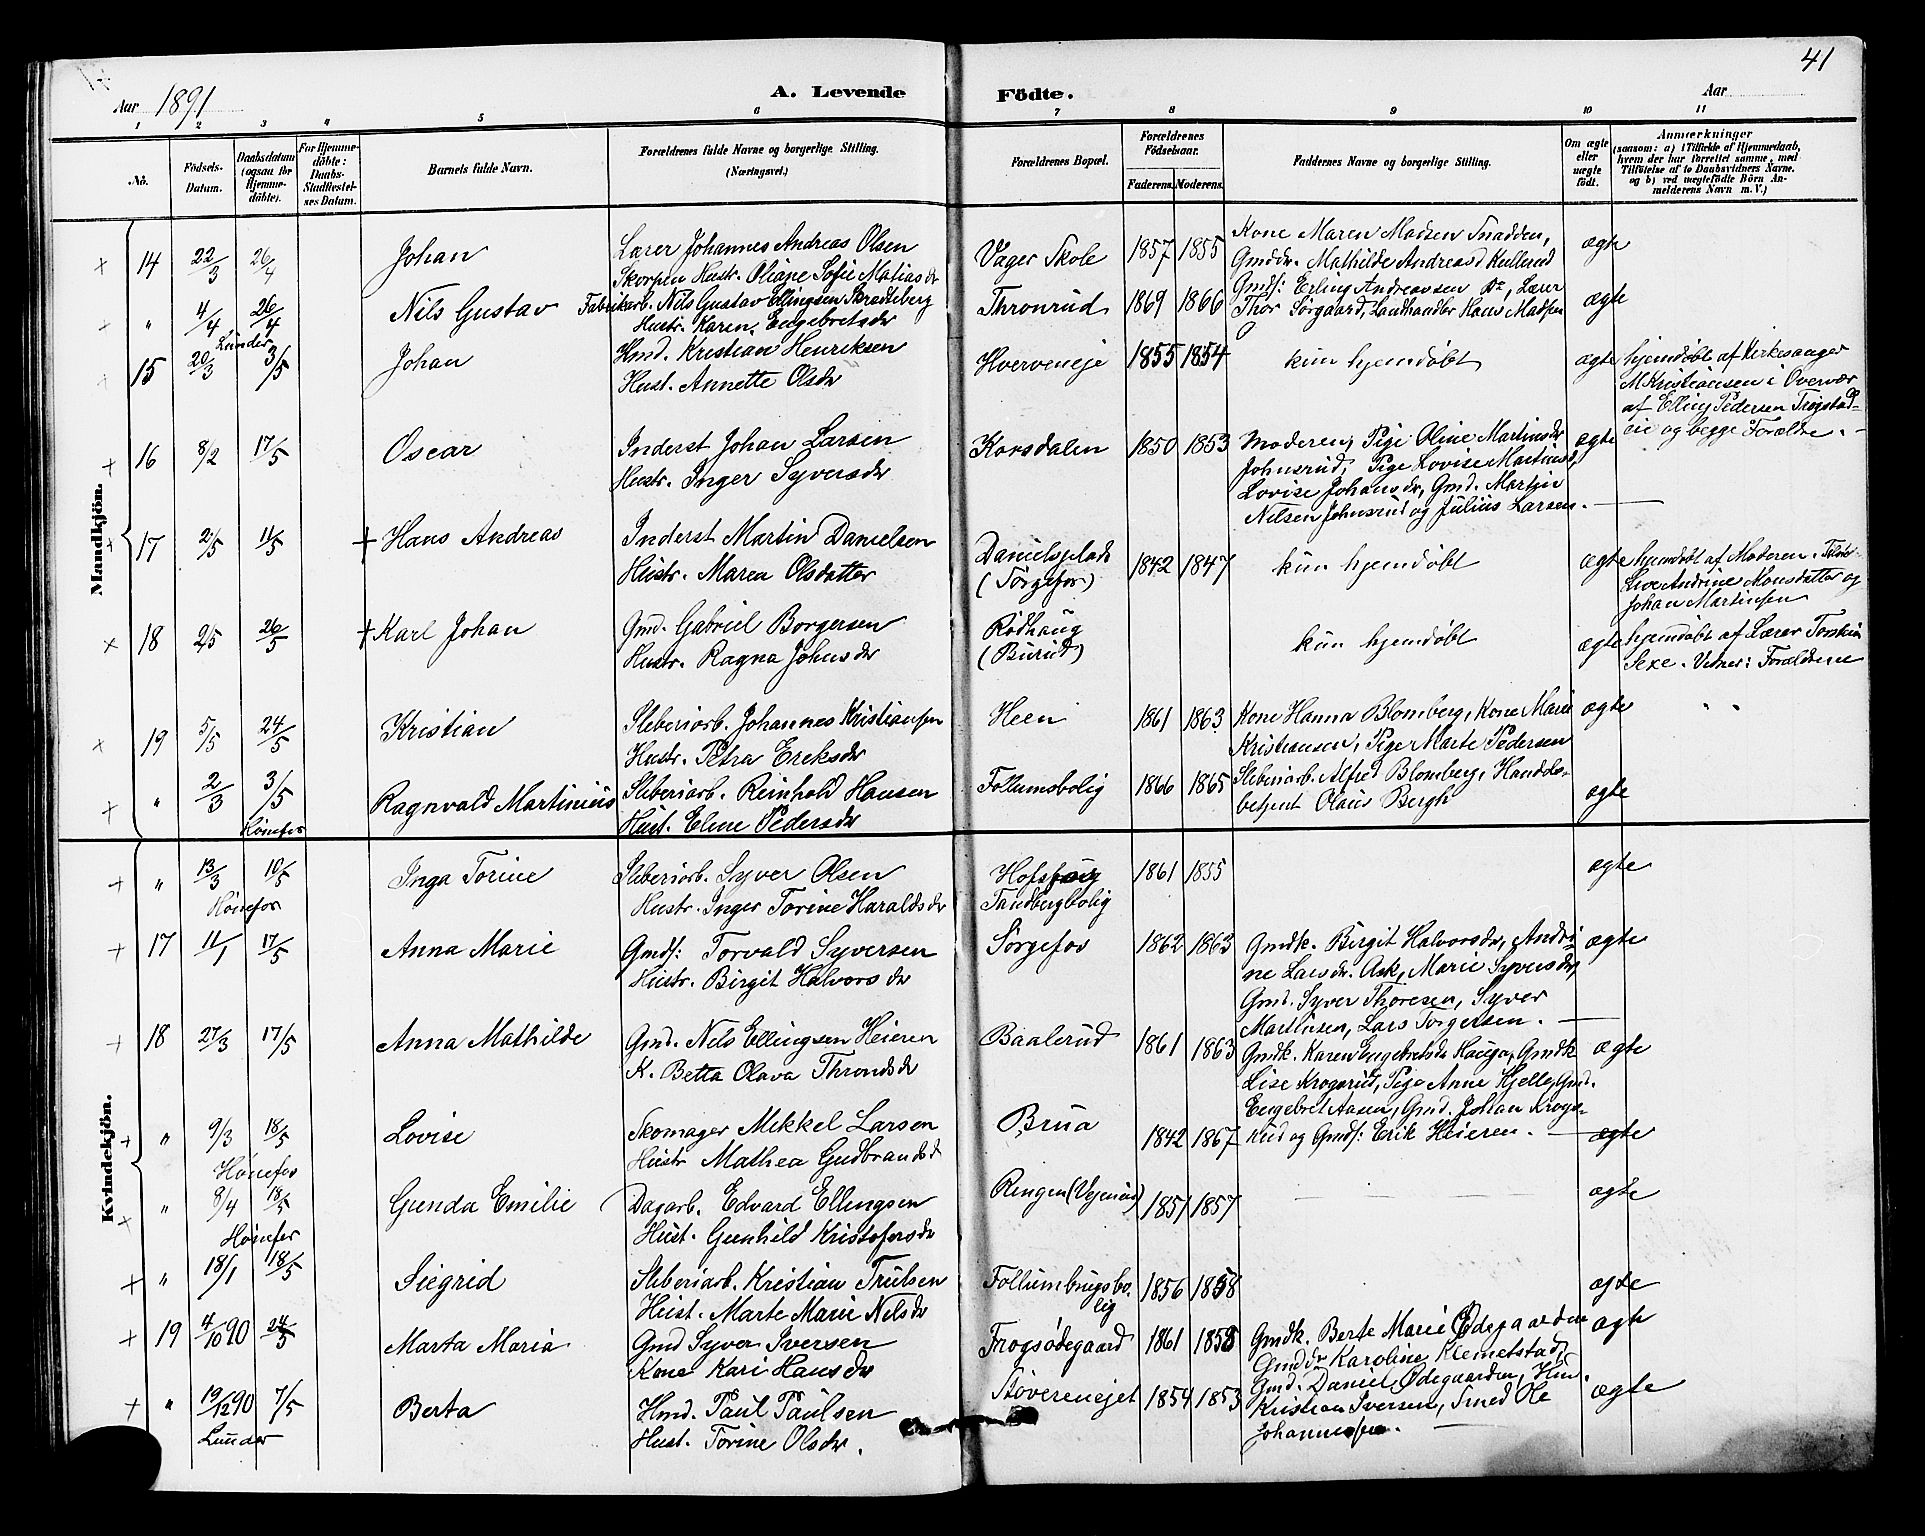 41
Aar 1891
A. Levende Födte.
Aar
1 2 3 4 5 6 7 8 9 10 11
No.
Födsels-Datum.
Daabsdatum (ogsaa for Hjemmedöbte).
For Hjemmedöbte: Daabs-Stadfæstelses Datum.
Barnets fulde Navn.
Forældrenes fulde Navne og borgerlige Stilling.
(Næringsvei.)
Forældrenes Bopæl.
Forældrenes Födselsaar.
Faderens. Moderens.
Faddernes Navne og borgerlige Stilling.
Om ægte eller uægte födt.
Anmærkninger
(saasom: a) i Tilfælde af Hjemmedaab, hvem der har forrettet samme, med Tilföielse af to Daabsvidners Navne. og b) ved uægtefödte Börn Anmelderens Navn m. V.)
Mandkjön.
14 22/3 26/4 Johan
Lærer Johannes Andreas Olsen
Skorpen Hustr. Oliane Sofie Matias dr
Vager Skole 1857 1855
Kone Maren Madsen Tradden,
Gmddr. Mathilde Andreasd Kullerud
Gmdf: Erling Andreassen Do, Lærer
Thor Sörgaard, Landhandler Hans Madsen
ægte
" 4/4 26/4 Nils Gustav
Lunder
Fabrikarb. Nils Gustav Ellingsen Bradtsberg
Hustr. Karen Engebretsdr
Thronrud 1869 1866 ægte
15 20/3 3/5 Johan
Hmd. Kristian Henriksen
Hust. Annette Olsdr
Hverveneje 1855 1854 kun hjemdøbt ægte
hjemdøbt af Kirkesanger
M Kristiansen i Overvær
af Elling Pedersen Trögstad-
eie og begge Forældre. -
16 8/2 17/5 Oscar
Inderst Johan Larsen
Hustr. Inger Syversdr
Korsdalen 1850 1853
Moderen, Pige Oline Martinsdr
Johnsrud, Pige Lovise Martinsd,
Lovise Johansdr, Gmd. Martin
Nilsen Johnsrud og Julius Larsen.
ægte
17 2/5 11/5 + Hans Andreas
Inderst Martin Danielsen
Hustr. Maren Olsdatter
Danielsplads
(Sørgefos) 1842 1847 kun hjemdøbt ægte
hjemdøbt af Moderen.
Live Andrine Monsdatter og
Johan Martinsen
18 2/5 26/5 + Karl Johan
Gmd. Gabriel Borgersen
Hustr. Ragna Johnsdr
Rödhaug
(Burud) kun hjemdøbt ægte
hjemdøbt af Lærer Torskin
Sexe. Vidner: Forældrene
19 5/5 24/5 Kristian
Sliberiarb. Johannes Kristiansen
Hustr. Petra Eriksdr
Heen 1861 1863
Kone Hanna Blomberg, Kone Marie
Kristiansen, Pige Marte Pedersen
Sliberiarb. Alfred Blomberg, Handels-
betjent Olaus Bergh
ægte
" 2/3 3/5 Ragnvald Martinius
Hönefos
Sliberiarb. Reinhold Hansen
Hust. Eline Pedersdr
Follumsbolig 1866 1865 ægte
Kvindekjön.
" 13/3 10/5 Inga Torine
Hönefos
Sliberiarb. Syver Olsen
Hustr. Inger Torine Haraldsdr
Hofsfos
Tandbergbolig 1861 1855 ægte
17 11/1 17/5 Anna Marie
Gmdf: Torvald Syversen
Hustr. Birgit Halvorsdr
Sørgefos 1862 1863
Gmdk. Birgit Halvorsdr, Andri-
ne Larsdr. Ask, Marie Syversdr,
Gmd. Syver Thoresen, Syver
Martinsen, Lars Torgersen.
ægte
18 27/3 17/5 Anna Mathilde
Gmd. Nils Ellingsen Heieren
K. Betta Olava Throndsdr
Baalerud 1861 1863
Gmdk. Karen Engebretsdr Hauga, Gmdk
Lise Krogsrud, Pige Anne Hjelle, Gmd.
Engebret Aasen, Gmd. Johan Krogs-
rud og Gmdf: Erik Heieren.
ægte
" 9/3 18/5 Lovise
Hönefos
Skomager Mikkel Larsen
Hustr Mathea Gudbrandsd
Brua 1842 1867 ægte
" 8/4 18/5 Gunda Emilie
Hönefos
Dagarb. Edvard Ellingsen
Hust. Gunhild Kristofersdr
Ringen (Vejenrud) 1851 1857 ægte
" 18/1 18/5 Siegrid
Sliberiarb. Kristian Trulsen
Hust. Marte Marie Nilsdr
Follumbrugsbo-
lig 1856 1858 ægte
19 4/10 90 24/5 Marta Maria
Gmd Syver Iversen
Kone Kari Hansdr
Frogsødegaard 1861 1858
Gmdk. Berte Marie Ødegaarden
Gmddr Karoline Klemetstad,
Gmd. Daniel Ødegaarden, Hm.
Kristian Iversen, Smed Ole
Johannesen.
ægte
" 19/12 90 7/5 Berta
Lunder
Hmd. Paul Paulsen
Hust. Torine Olsdr.
Støverenejet 1854 1853 ægte